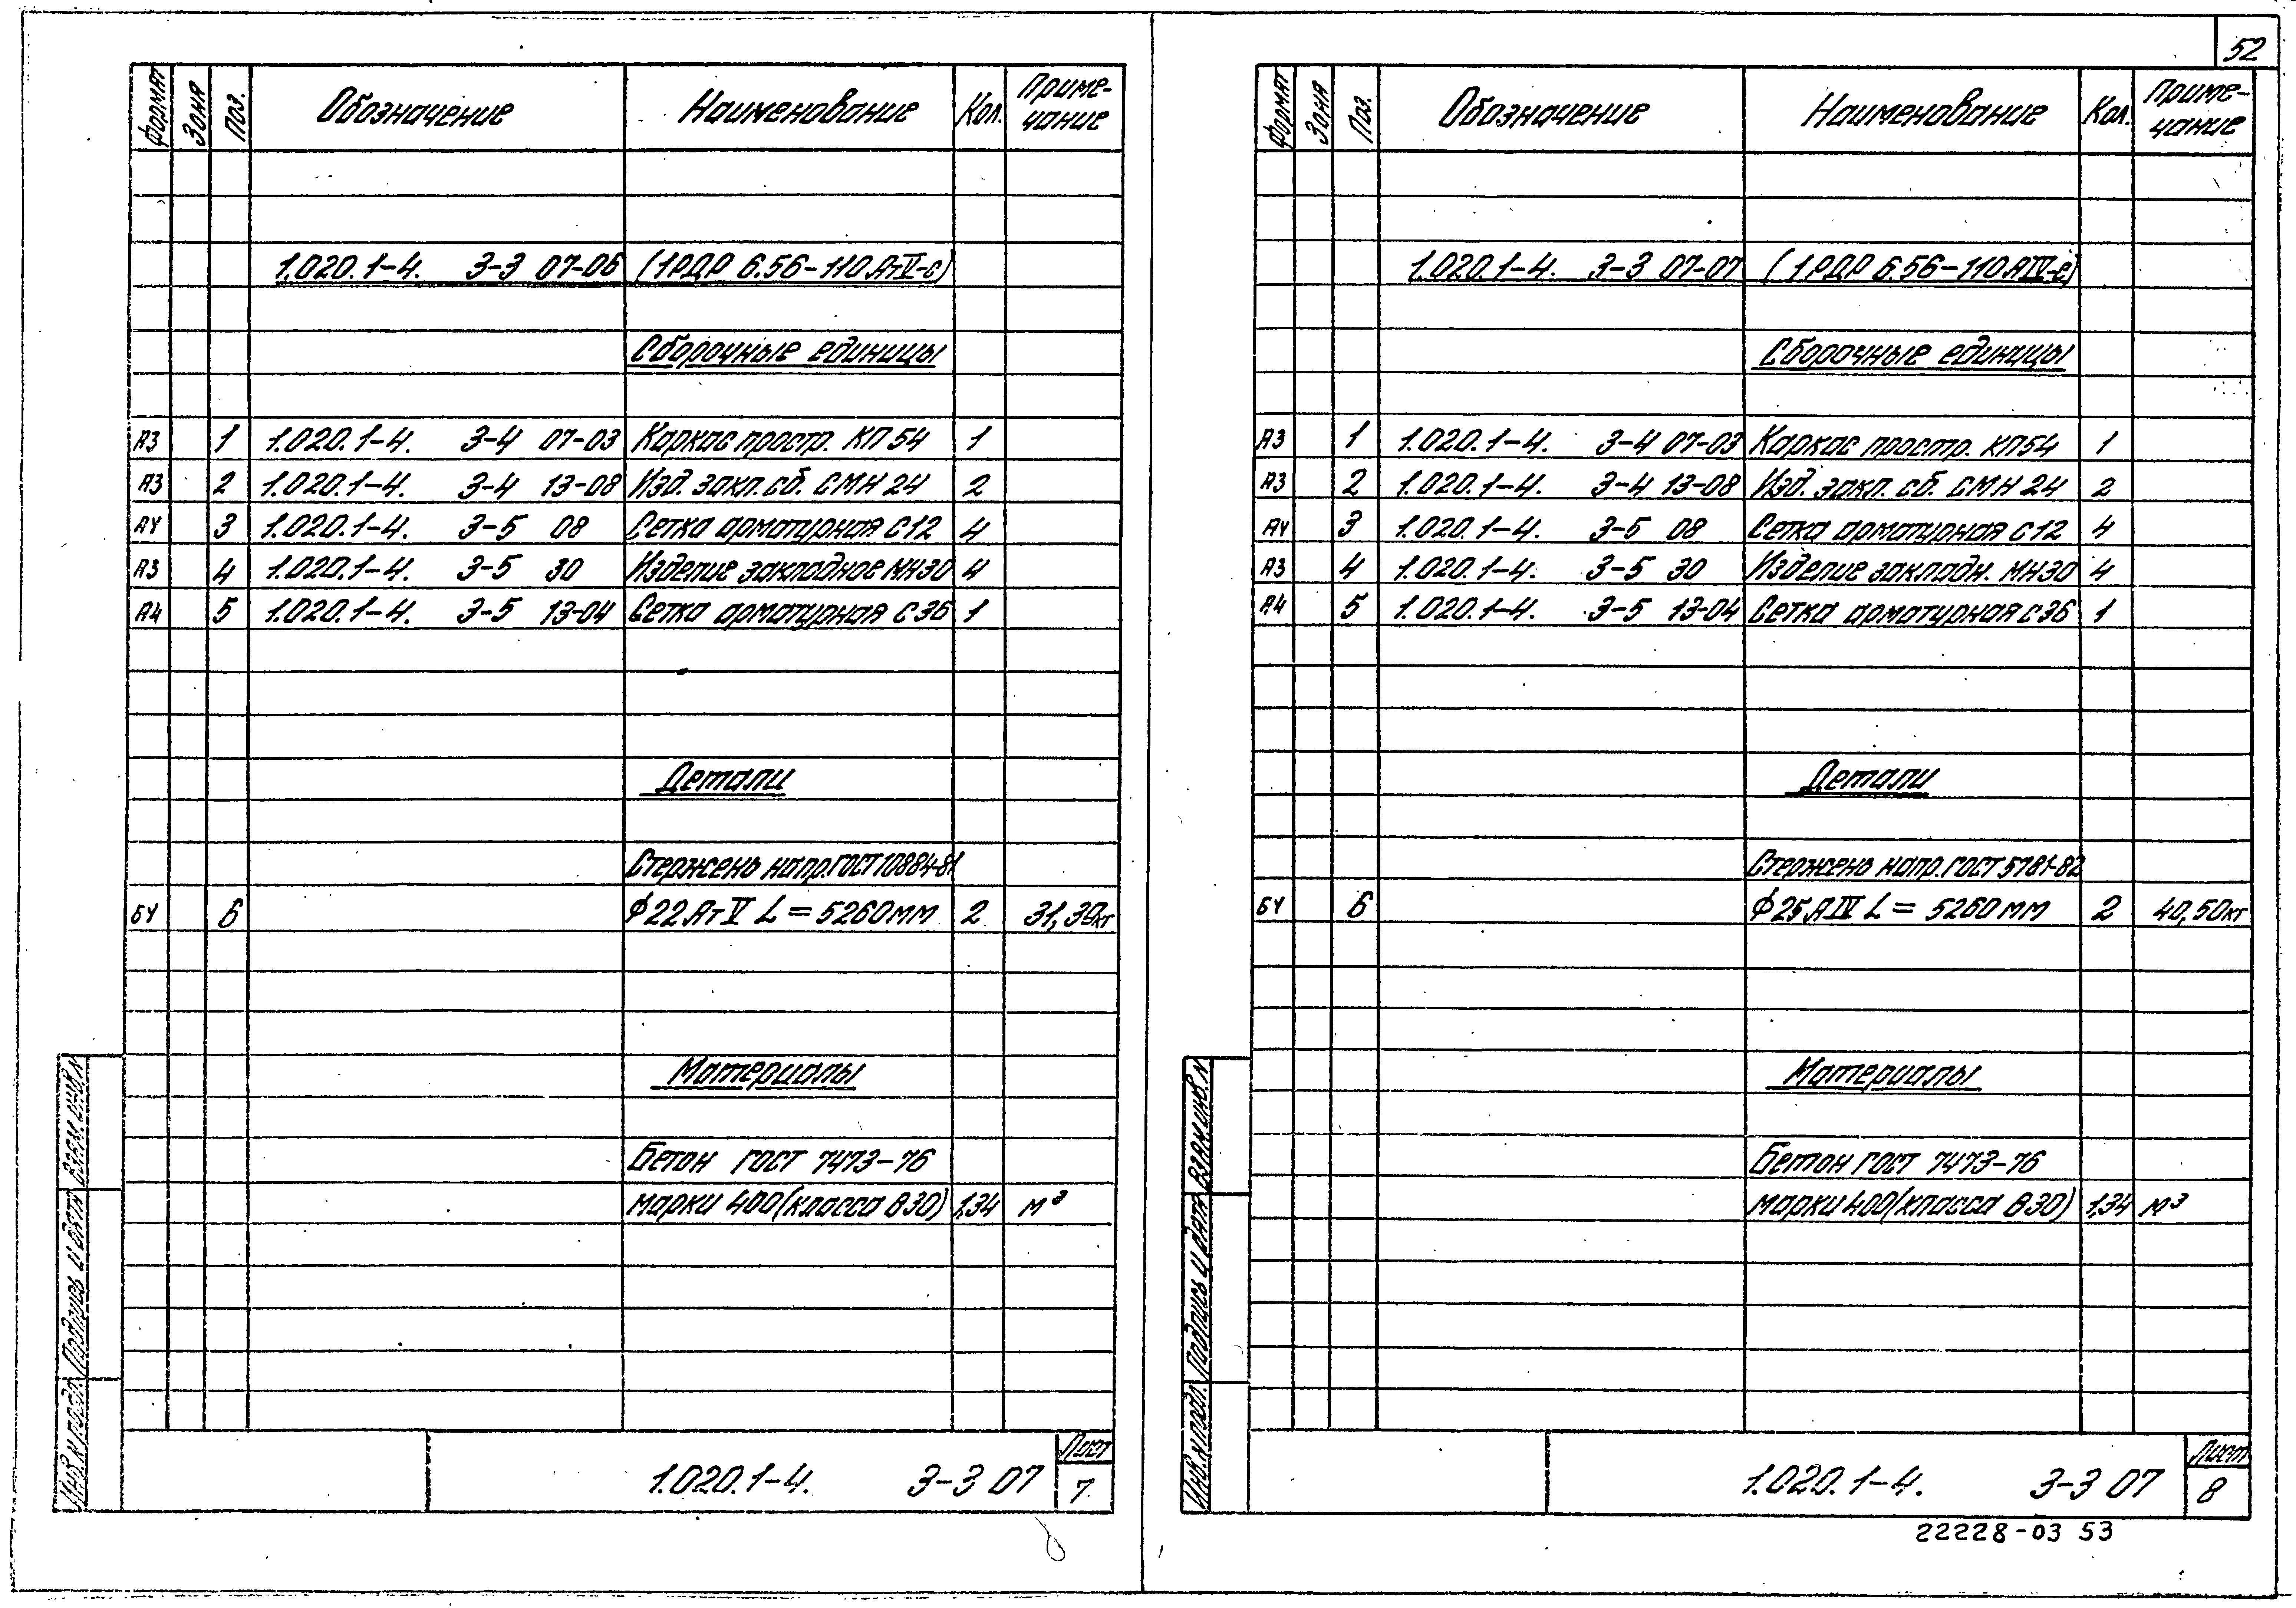 52
Формат Зона Поз. Обозначение Наименование Кол. Приме-
чание
1.020.1-4. 3-3 07-06 (1РДР 6.56-110 АтV-с)
Сборочные единицы
А3 1 1.020.1-4. 3-4 07-03 Каркас простр. КП54 1
А3 2 1.020.1-4. 3-4 13-08 Изд. закл. сб. СМН 24 2
А4 3 1.020.1-4. 3-5 08 Сетка арматурная С12 4
А3 4 1.020.1-4. 3-5 30 Изделие закладное МН30 4
А4 5 1.020.1-4. 3-5 13-04 Сетка арматурная С36 1
Детали
Стержень напр. ГОСТ 10884-81
БЧ 6 ϕ22 АтV L=5260мм 2 31,39кг
Материалы
Бетон ГОСТ 7473-76
марки 400 (класса В30) 1,34 м³
Инв. № подл. Подпись и дата Взам. инв. №
Лист
1.020.1-4. 3-3 07 7
Формат Зона Поз. Обозначение Наименование Кол. Приме-
чание
1.020.1-4. 3-3 07-07 (1РДР 6.56-110 АIV-с)
Сборочные единицы
А3 1 1.020.1-4. 3-4 07-03 Каркас простр. КП54 1
А3 2 1.020.1-4. 3-4 13-08 Изд. закл. сб. СМН 24 2
А4 3 1.020.1-4. 3-5 08 Сетка арматурная С12 4
А3 4 1.020.1-4. 3-5 30 Изделие закладн. МН30 4
А4 5 1.020.1-4. 3-5 13-04 Сетка арматурная С36 1
Детали
Стержень напр. ГОСТ 5781-82
БЧ 6 ϕ25 АIV L=5260мм 2 40,50кг
Материалы
Бетон ГОСТ 7473-76
марки 400 (класса В30) 1,34 м³
Инв. № подл. Подпись и дата Взам инв. №
Лист
1.020.1-4. 3-3 07 8
22228-03 53